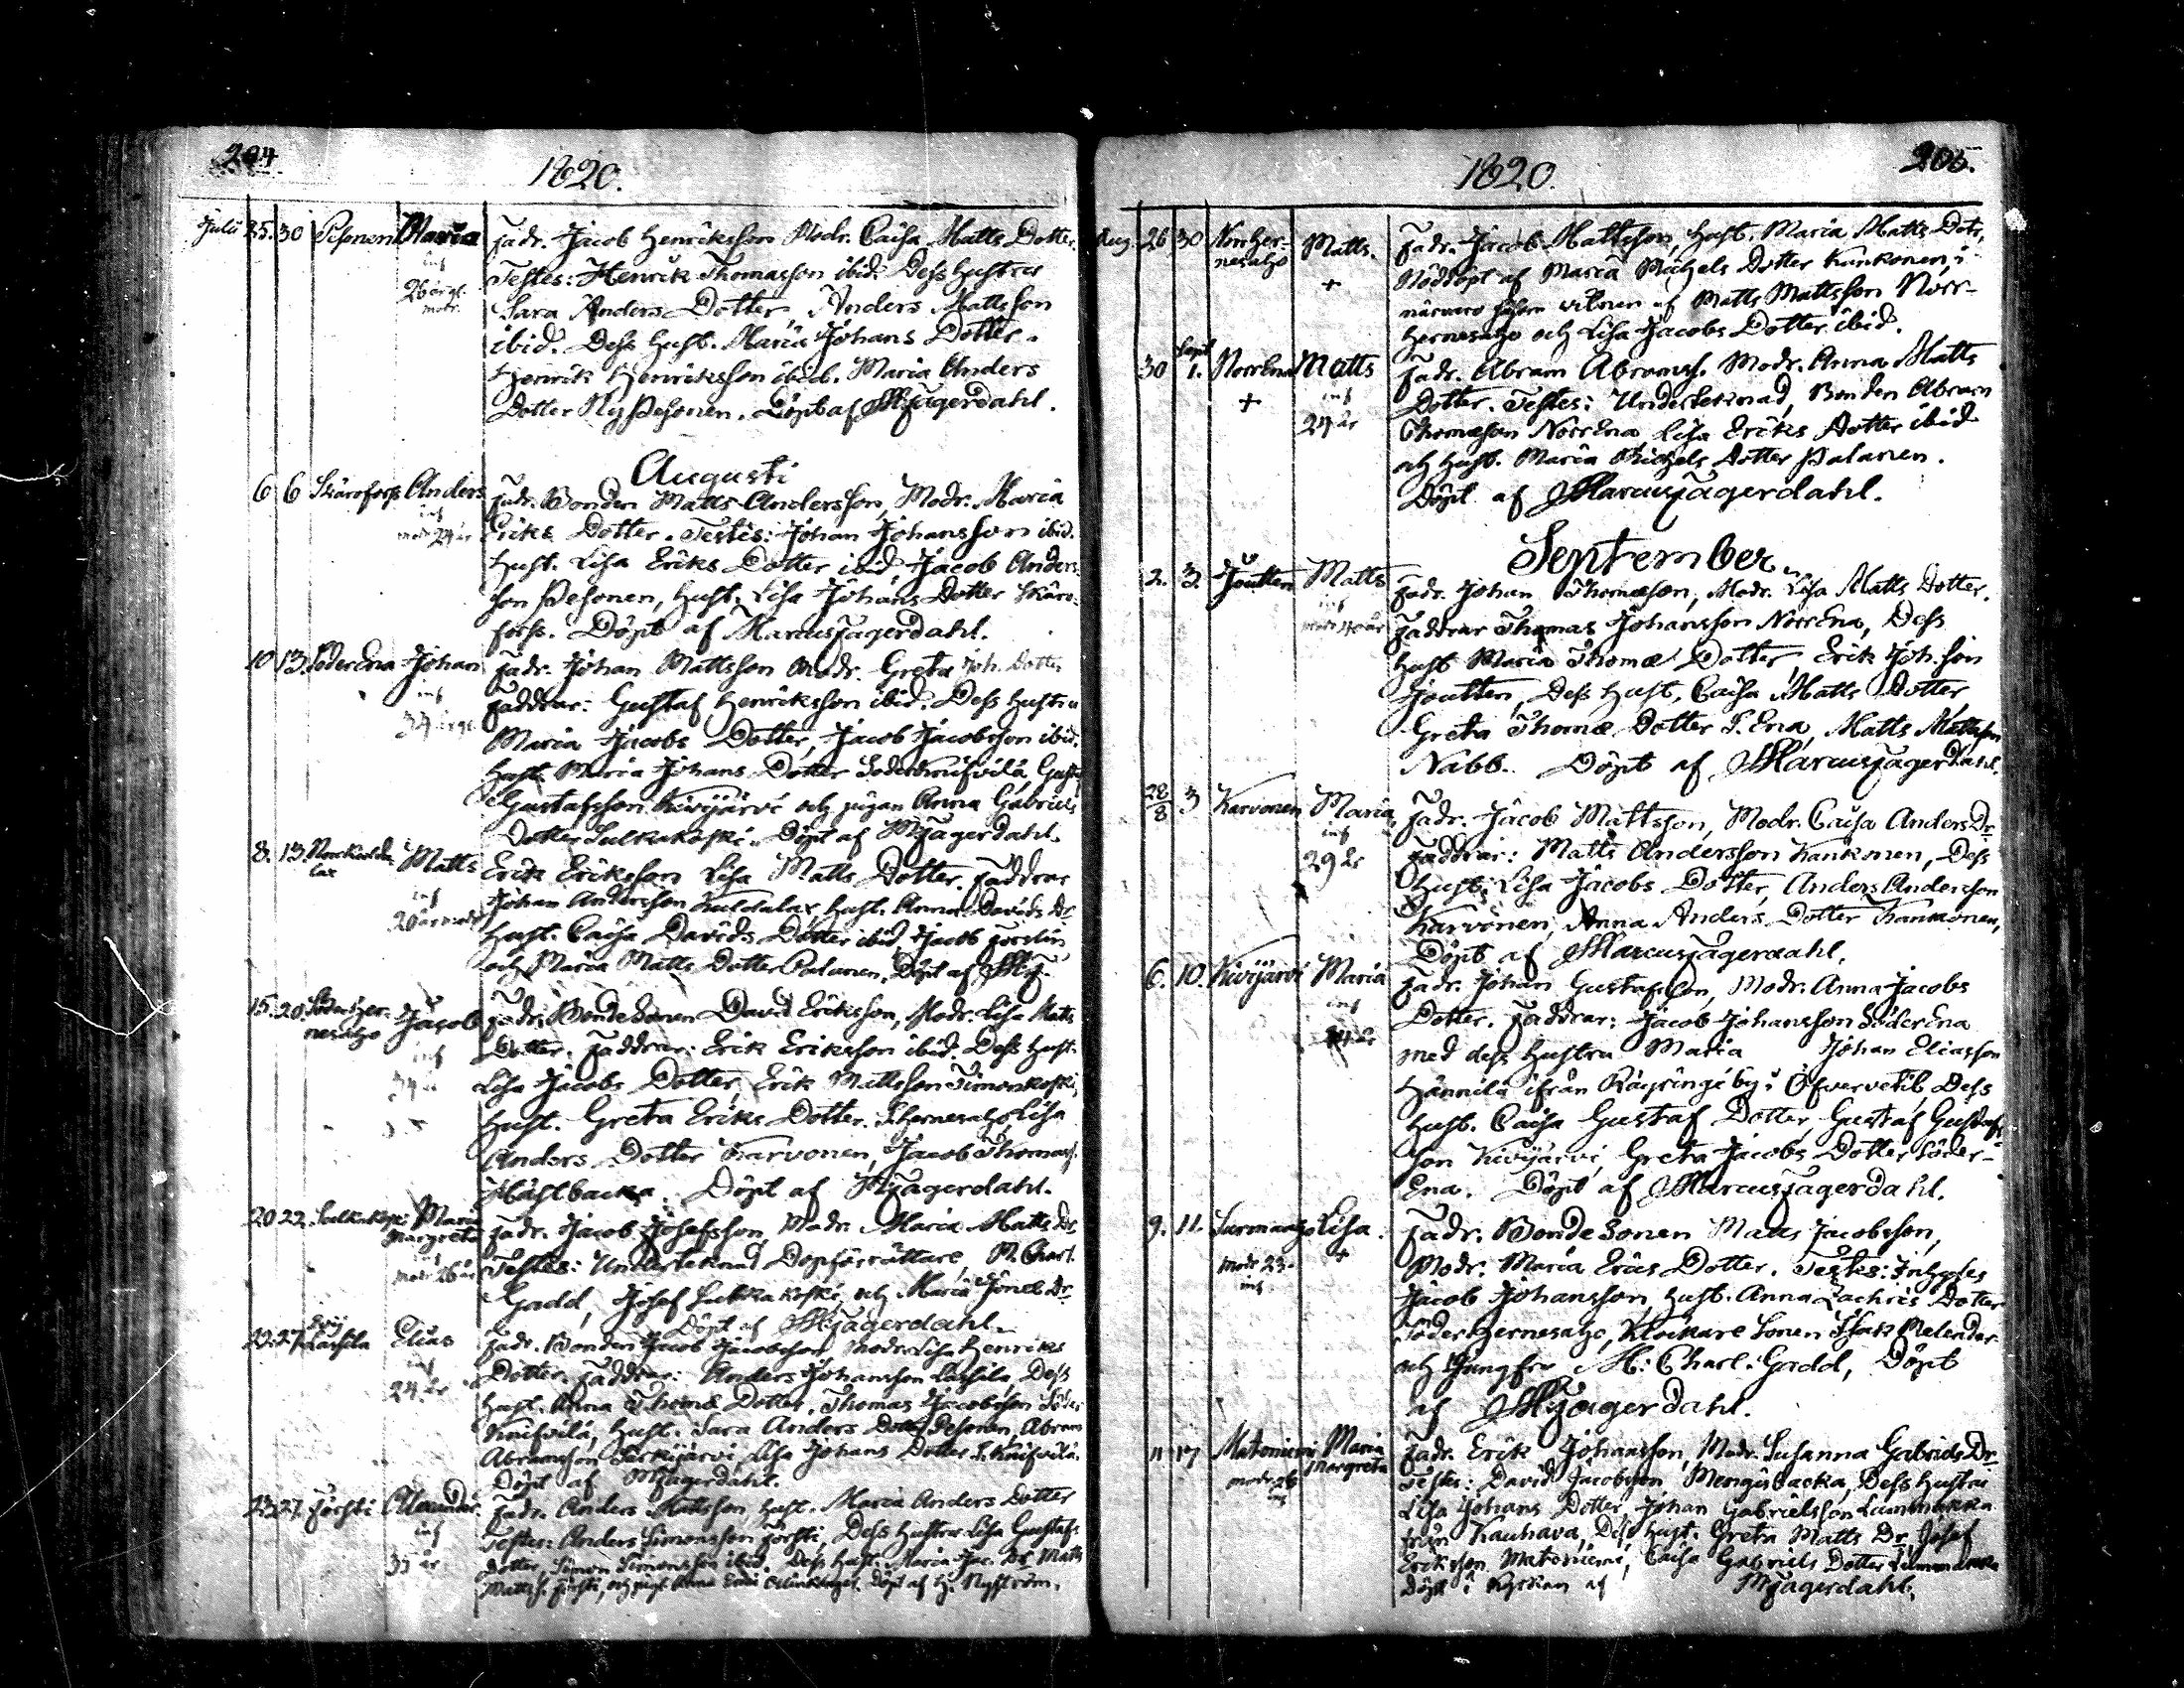 204
1820.
Juli 25. 30 Pesonen Maria Fadr. Jacob Henriksson Modr. Caisa Matts Dotter.
Testes: Henrik Thomasson ibid. Dess Hustru
26 årg. modr.
Sara Anders Dotter, Anders Mattsson
ibid. Dess Hust. Maria Johans Dotter.
Henrik Henriksson ibid. Maria Anders
Dotter Ny Pesonen. Döpt af MJagerdahl.
Augusti
6 6 Skärsfors Anders Fadr. Bonden Matts Andersson, Modr. Maria
modr 24 år
Eriks Dotter. Testes: Johan Johansson ibid.
Hust. Lisa Eriks Dotter ibid, Jacob Anders-
son Pesonen, Hust. Lisa Johans Dotter Skärs-
forss. Döpt af Marcus Jagerdahl.
10 13. SöderEna Johan Fadr. Johan Mattsson Modr. Greta Joh. Dotter
Faddrar: Gustaf Henriksson ibid. Dess Hustru
Maria Jacobs Dotter, Jacob Jacobsson ibid.
Hust. Maria Johans Dotter Söderknifvilä, Gustaf
Gustafsson Kivijärvi och pigan Anna Gabriels
Dotter Sulkakoski. Döpt af MJagerdahl.
8. 13. Matts Erik Eriksson Lisa Matts Dotter. Faddrar
20 år modr
Johan Andersson Kuldalax, Hust. Anna Davids Dr
Hust. Caisa Davids Dotter ibid, Jacob
och Maria Matts Dotter Palanen. Döpt af MJ
15. 20. Söderher-
nesaho Jacob Fadr. Bonde Sonen David Eriksson, Modr. Lisa Matts
Dotter. Faddrar: Erik Eriksson ibid. Dess Hust.
Lisa Jacobs Dotter, Erik Mattsson Timonkoski,
Hust. Greta Eriks Dotter. S. hernesaho Lisa
Anders Dotter Karvonen, Jacob Thomass.
Hästbacka. Döpt af MJagerdahl.
20 22. Sulkakoski Maria
Margreta Fadr. Jacob Josefsson, Modr. Maria Matts Dr.
modr 26 år
Testes: Undertecknad Dopförrättare, M. Charl.
Gadd, Josef Sulkakoski, och Maria Jonæ Dr
Döpt af MJagerdahl.
22. 27. Lassila Elias Fadr. Bonden Jacob Jacobsson, Modr. Lisa Henriks
24 år
Dotter. Faddrar: Anders Johansson Lassila, Dess
Hust. Anna Thomæ Dotter, Thomas Jacobsson Söder
Knifvilä, Hust. Sara Anders Dotter Pesonen, Abram
Abramsson Särkijärvi, Lisa Johans Dotter S. Knifvilä.
Döpt af MJagerdahl.
23. 27. Försti Alexander. Fadr. Anders Mattsson, Hust. Maria Anders Dotter
35 år
Testes: Anders Simonsson Försti, Dess Hustru Lisa Gustafs
dotter, Simon Simonsson ibid. Dess Hust. Maria Jac. Dr. Matts
Döpt af H. Nyström.
205.
1820.
Aug. 26 30 Norrher-
nesaho Matts. Fadr. Jacob Mattsson, Hust. Maria Matts Dotr,
+
Nöddöpt af Maria Michels Dotter Kankonen, i
närvaro såsom vitnen af Matts Mattsson Norr-
hernesaho och Lisa Jacobs Dotter ibid.
30 Sept 1. NorrEna Matts Fadr. Abram Abramss. Modr. Anna Matts
+
24 år
Dotter. Testes: Undertecknad, Bonden Abram
Thomasson NorrEna, Lisa Eriks Dotter ibid
och Hust. Maria Michels Dotter Palanen.
Döpt af Marcus Jagerdahl.
September.
2. 3. Joutten Matts Fadr. Johan Thomasson, Modr. Lisa Matts Dotter.
Faddrar Thomas Johansson NorrEna, Dess
Hust Maria Thomæ Dotter, Erik Joh.son
Joutten, Dess Hust, Caisa Matts Dotter
Greta Thomæ Dotter S. Ena, Matts Mattsson
Nabb. Döpt af Marcus Jagerdahl.
28/8 3 Karvonen Maria Fadr. Jacob Mattsson, Modr. Caisa Anders Dr
29 år
Faddrar: Matts Andersson Kankonen, Dess
Hust. Lisa Jacobs Dotter, Anders Andersson
Karvonen, Anna Anders Dotter Kankonen,
Döpt af Marcus Jagerdahl.
6. 10. Kivijärvi Maria Fadr. Johan Gustafsson, Modr. Anna Jacobs
Dotter. Faddrar: Jacob Johansson SöderEna
med dess Hustru Maria Johan Eliasson
Hännilä ifrån Räyringi by i Öfvervetil, Dess
Hust. Caisa Gustaf Dotter, Gustaf Gustafs-
son Kivijärvi, Greta Jacobs Dotter Söder-
Ena. Döpt af Marcus Jagerdahl.
9. 11. Surmaaho Lisa. Fadr. Bonde Sonen Matts Jacobsson,
modr 23. +
Modr: Maria Erics Dotter. Testes:
Jacob Johansson, Hust. Anna Zachris Dotter
Söder hernesaho, Klockare Sonen Isak Melender
och Jungfru M: Charl: Gadd, Döpt
af MJagerdahl.
11 17 Matoniemi Maria
Margreta Fadr. Erik Johansson, Modr. Susanna Gabriels Dr
modr. 26
Testes: David Jacobsson Mengisbacka, Dess Hustru
Lisa Johans Dotter, Johan Gabrielsson Lummukka
från Kauhava, Dess Hust. Greta Matts Dr, Josef
Eriksson Matoniemi, Caisa Gabriels Dotter Lummukka
Döpt i Kyrkan af MJagerdahl.